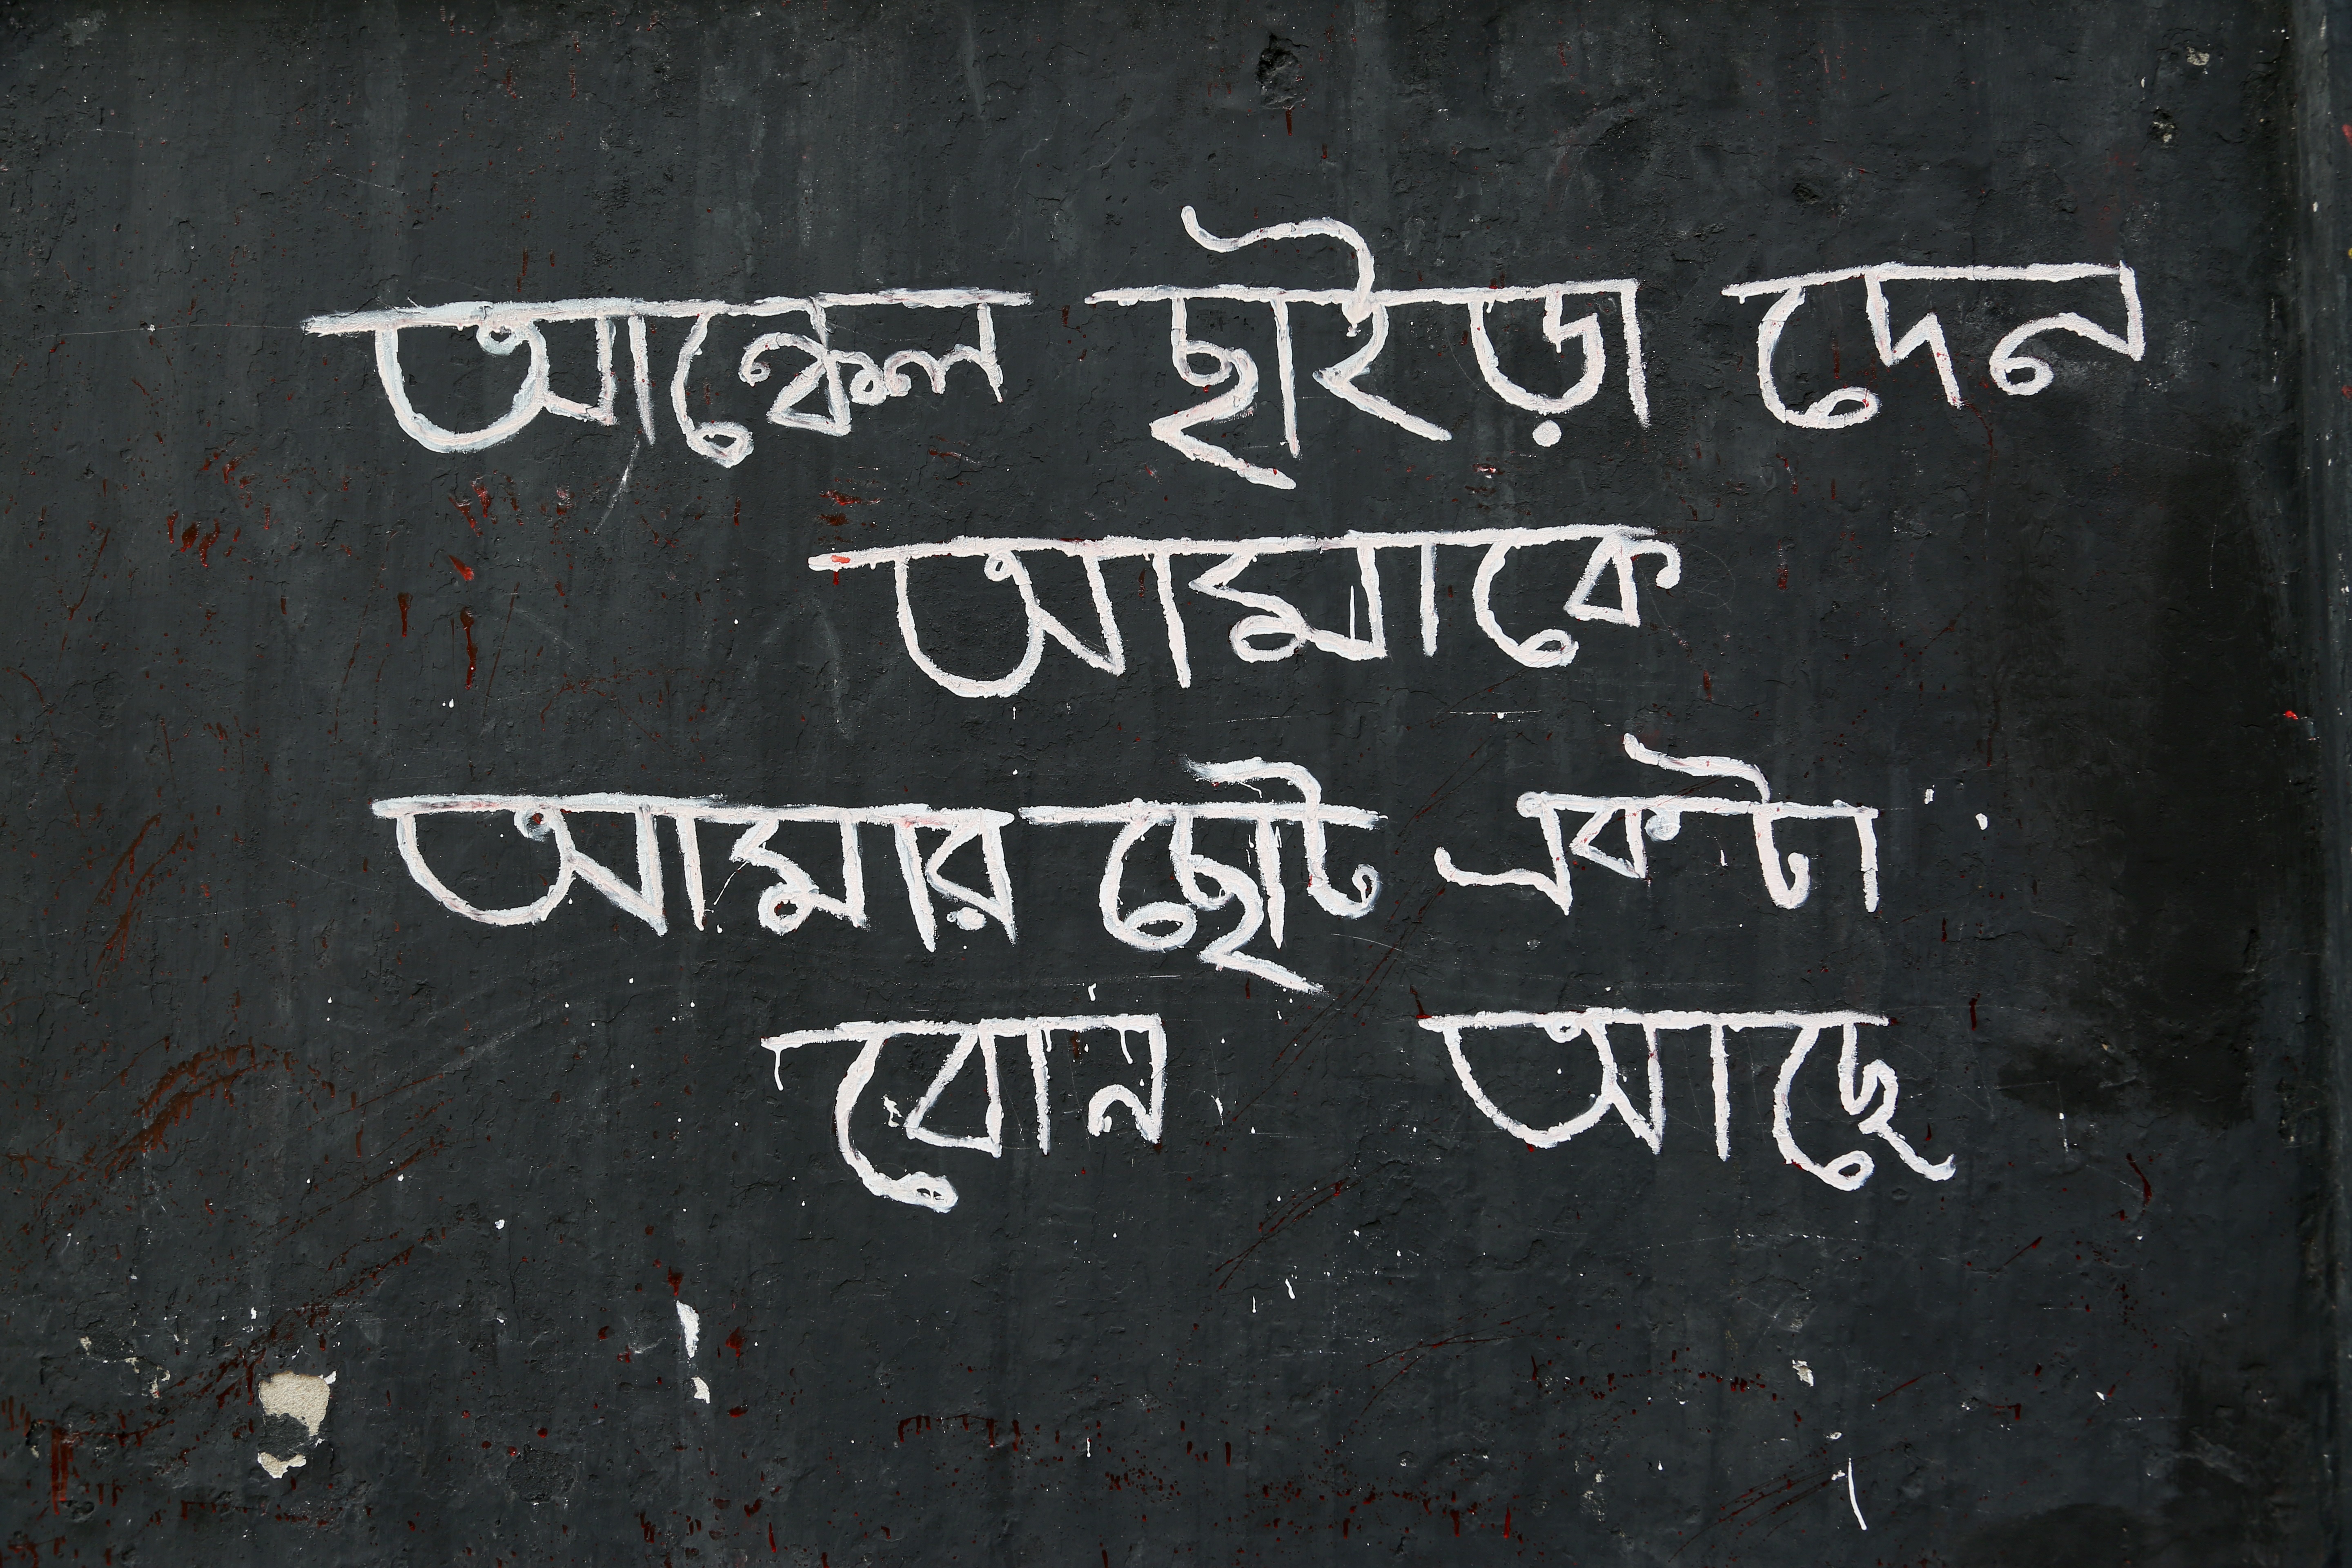 আঙ্কেল ছাইড়া দেন
আমাকে
আমার ছোট একটা
বোন আছে